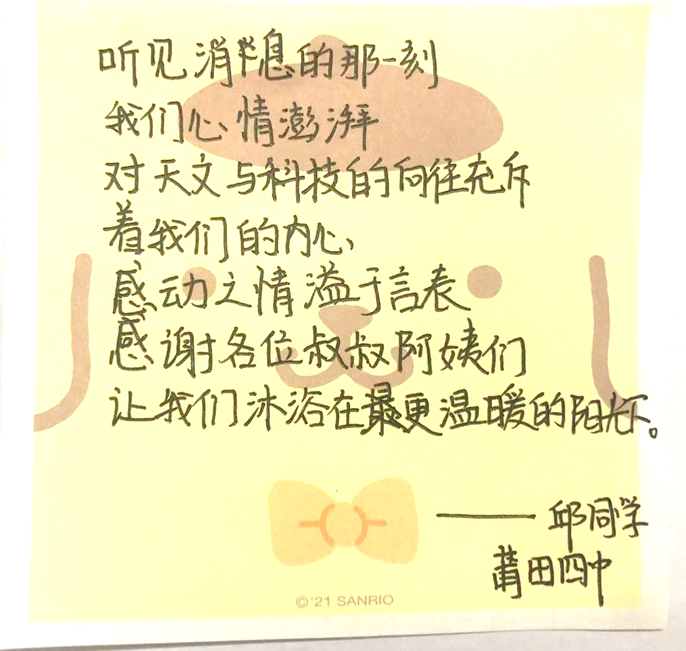 听见消息的那一刻
我们心情澎湃
对天文与科技的向往充斥
着我们的内心
感动之情溢于言表
感谢各位叔叔阿姨们
让我们沐浴在最更温暖的阳光下。
——邱同学
莆田四中
©'21 SANRIO